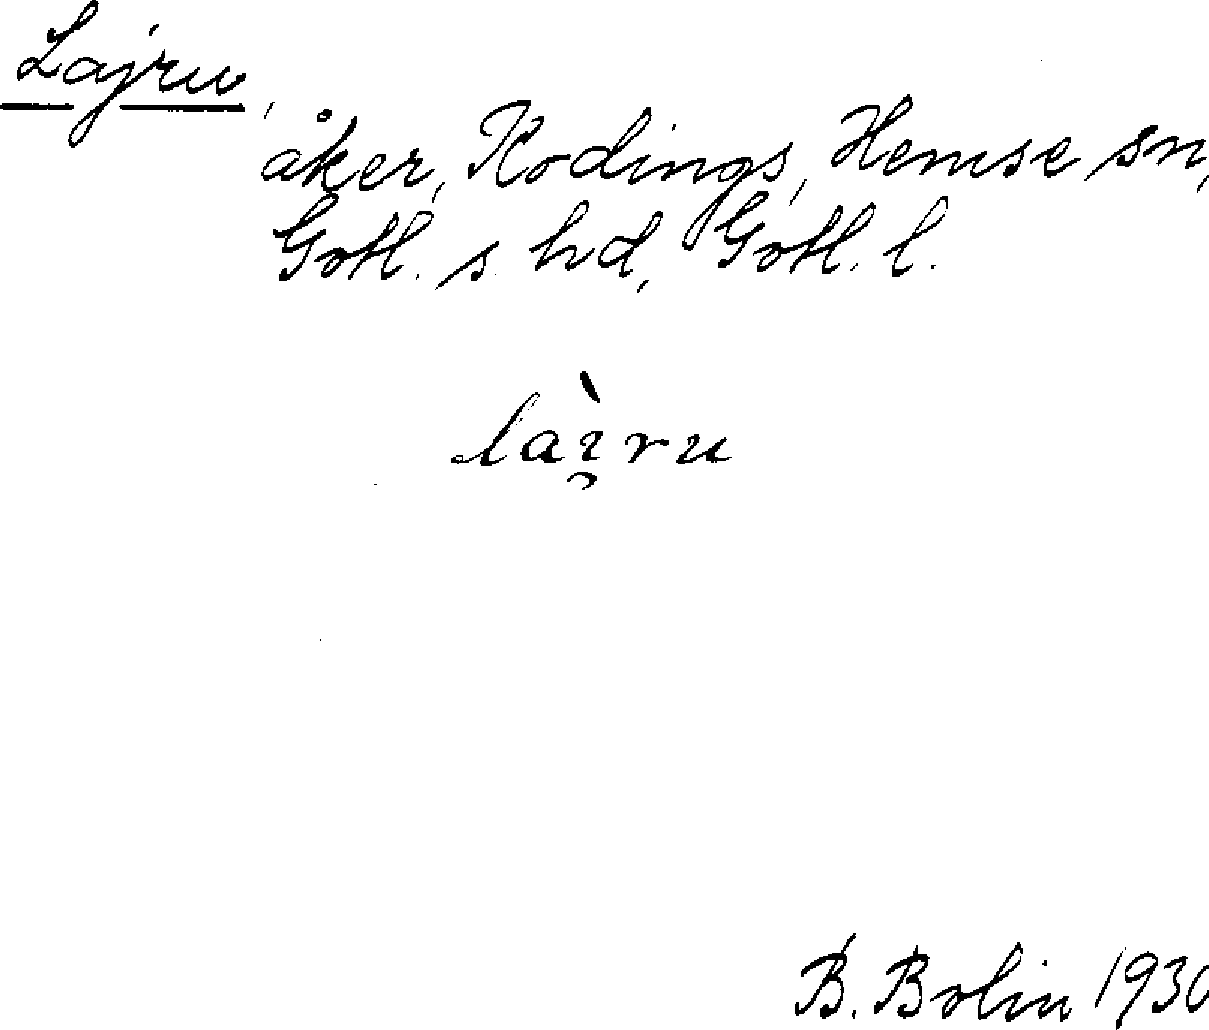 Lajru,
åker, Kodings, Hemse sn,
Gotl. s. hd, Gotl. l.
laì̯ru
B. Bolin 1930